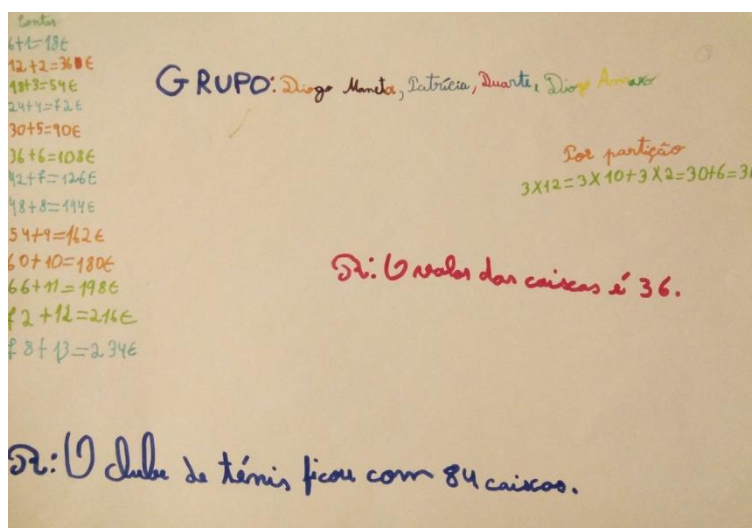 Contas
6+1=18€
12+2=36€
18+3=54€
24+4=72€
30+5=90€
36+6=108€
42+7=126€
48+8=144€
54+9=162€
60+10=180€
66+11=198€
72+12=216€
78+13=234€
GRUPO: Diogo Maneta, Patrícia, Duarte, Diogo Amaro
Por partição
3X12=3X10+3X2=30+6=3
R: O valor das caixas é 36.
R: O clube de ténis ficou com 84 caixas.